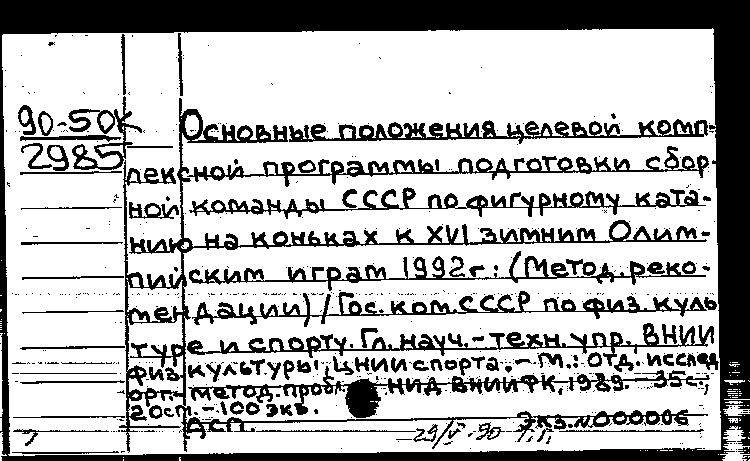 90-50К
2985
Основные положения целевой комп-
лексной программы подготовки сбор-
ной команды СССР по фигурному ката-
нию на коньках к XVI зимним Олим-
пийским играм 1992г.: (Метод. реко-
мендации) / Гос. ком. СССР по физ. куль
туре и спорту. Гл. науч.-техн. упр., ВНИИ
физ. культуры, ЦНИИ спорта. - М.: отд. исслед
орг.-метод. пробл. НИД ВНИИФК, 1989. - 35с.;
20см. - 100 экз.
ДСП. Экз. N000006
29/V-90